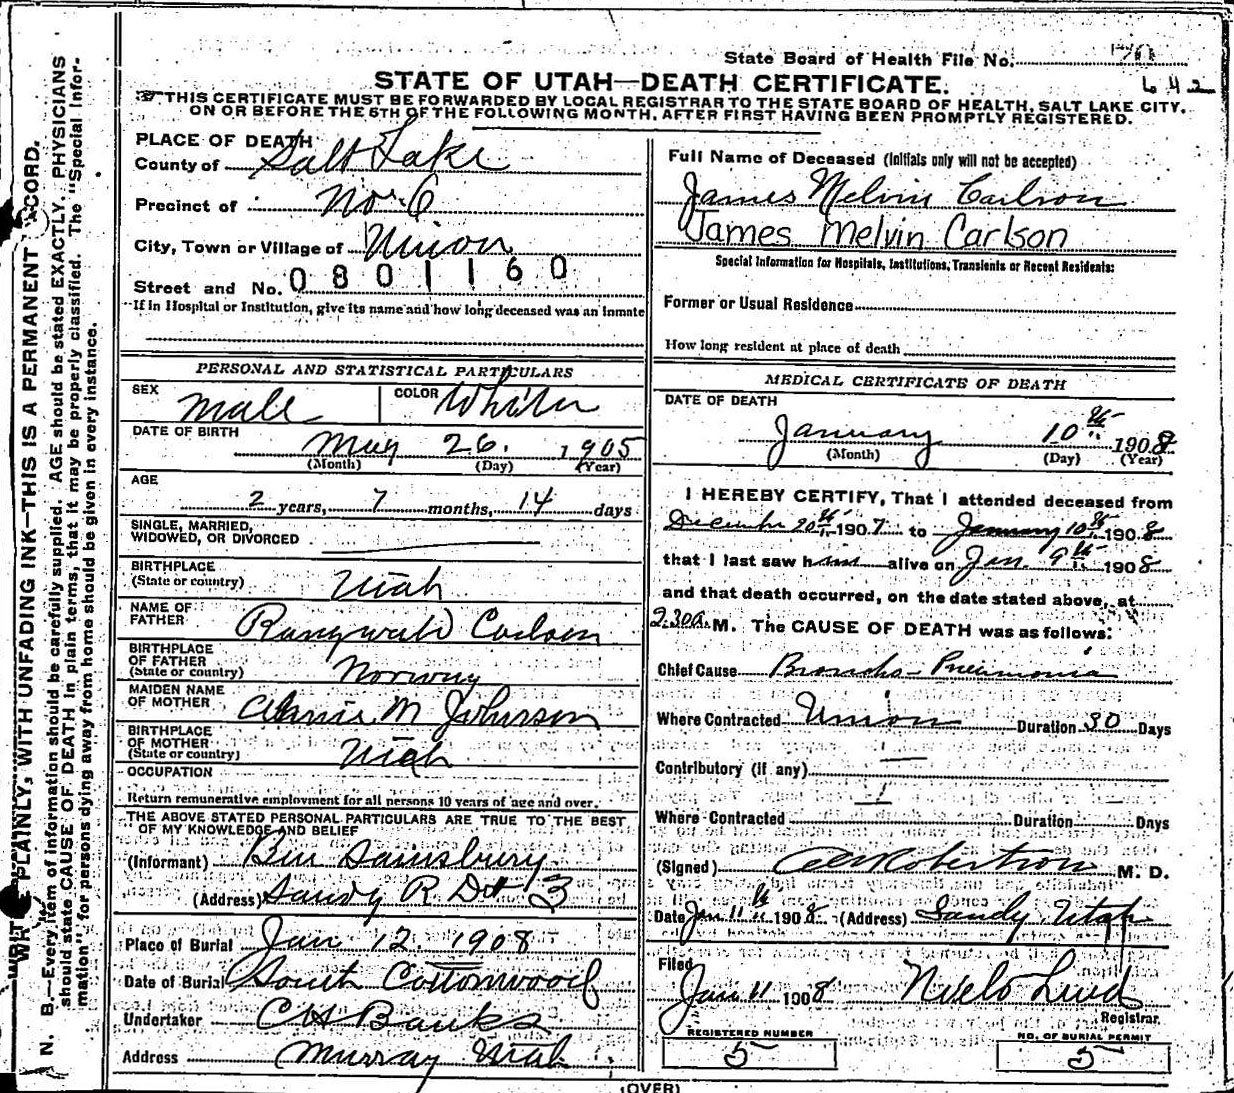 State Board of Health File No.
642
STATE OF UTAH—DEATH CERTIFICATE.
THIS CERTIFICATE MUST BE FORWARDED BY LOCAL REGISTRAR TO THE STATE BOARD OF HEALTH, SALT LAKE CITY,
ON OR BEFORE THE 5TH OF THE FOLLOWING MONTH, AFTER FIRST HAVING BEEN PROMPTLY REGISTERED.
PLACE OF DEATH
County of Salt Lake
Precinct of No. 6
City, Town or Village of Union
Street and No. 0801160
If in Hospital or Institution, give its name and how long deceased was an inmate
PERSONAL AND STATISTICAL PARTICULARS
SEX Male COLOR White
DATE OF BIRTH
May 26. 1905
(Month) (Day) (Year)
AGE
2 years, 7 months, 14 days
SINGLE, MARRIED,
WIDOWED, OR DIVORCED
BIRTHPLACE
(State or country) Utah
NAME OF
FATHER Rangwald Carlson
BIRTHPLACE
OF FATHER
(State or country) Norway
MAIDEN NAME
OF MOTHER Annie M Johnson
BIRTHPLACE
OF MOTHER
(State or country) Utah
OCCUPATION
Return remunerative employment for all persons 10 years of age and over.
THE ABOVE STATED PERSONAL PARTICULARS ARE TRUE TO THE BEST
OF MY KNOWLEDGE AND BELIEF
(Informant) Ben Sainsbury
(Address) Sandy R D # 3
Place of Burial Jan 12 1908
Date of Burial South Cottonwood
Undertaker C H Banks
Address Murray Utah
Full Name of Deceased (Initials only will not be accepted)
James Melvin Carlson
James Melvin Carlson
Special Information for Hospitals, Institutions, Transients or Recent Residents:
Former or Usual Residence
How long resident at place of death
MEDICAL CERTIFICATE OF DEATH
DATE OF DEATH
January 10th 1908
(Month) (Day) (Year)
I HEREBY CERTIFY, That I attended deceased from
December 20th 1907 to January 10th 1908
that I last saw him alive on Jan. 9th 1908
and that death occurred, on the date stated above, at
2.30a. M. The CAUSE OF DEATH was as follows:
Chief Cause Broncho-Pneumonia
Where Contracted Union Duration 30 Days
Contributory (if any)
Where Contracted Duration Days
(Signed) Robertson M. D.
Date Jan 11th 1908 (Address) Sandy Utah
Filed
Jan 11 1908
Registrar.
REGISTERED NUMBER
5
NO. OF BURIAL PERMIT
5
(OVER)
WRITE PLAINLY, WITH UNFADING INK—THIS IS A PERMANENT RECORD.
N. B.—Every item of information should be carefully supplied. AGE should be stated EXACTLY. PHYSICIANS
should state CAUSE OF DEATH in plain terms, that it may be properly classified. The "Special Infor-
mation" for persons dying away from home should be given in every instance.